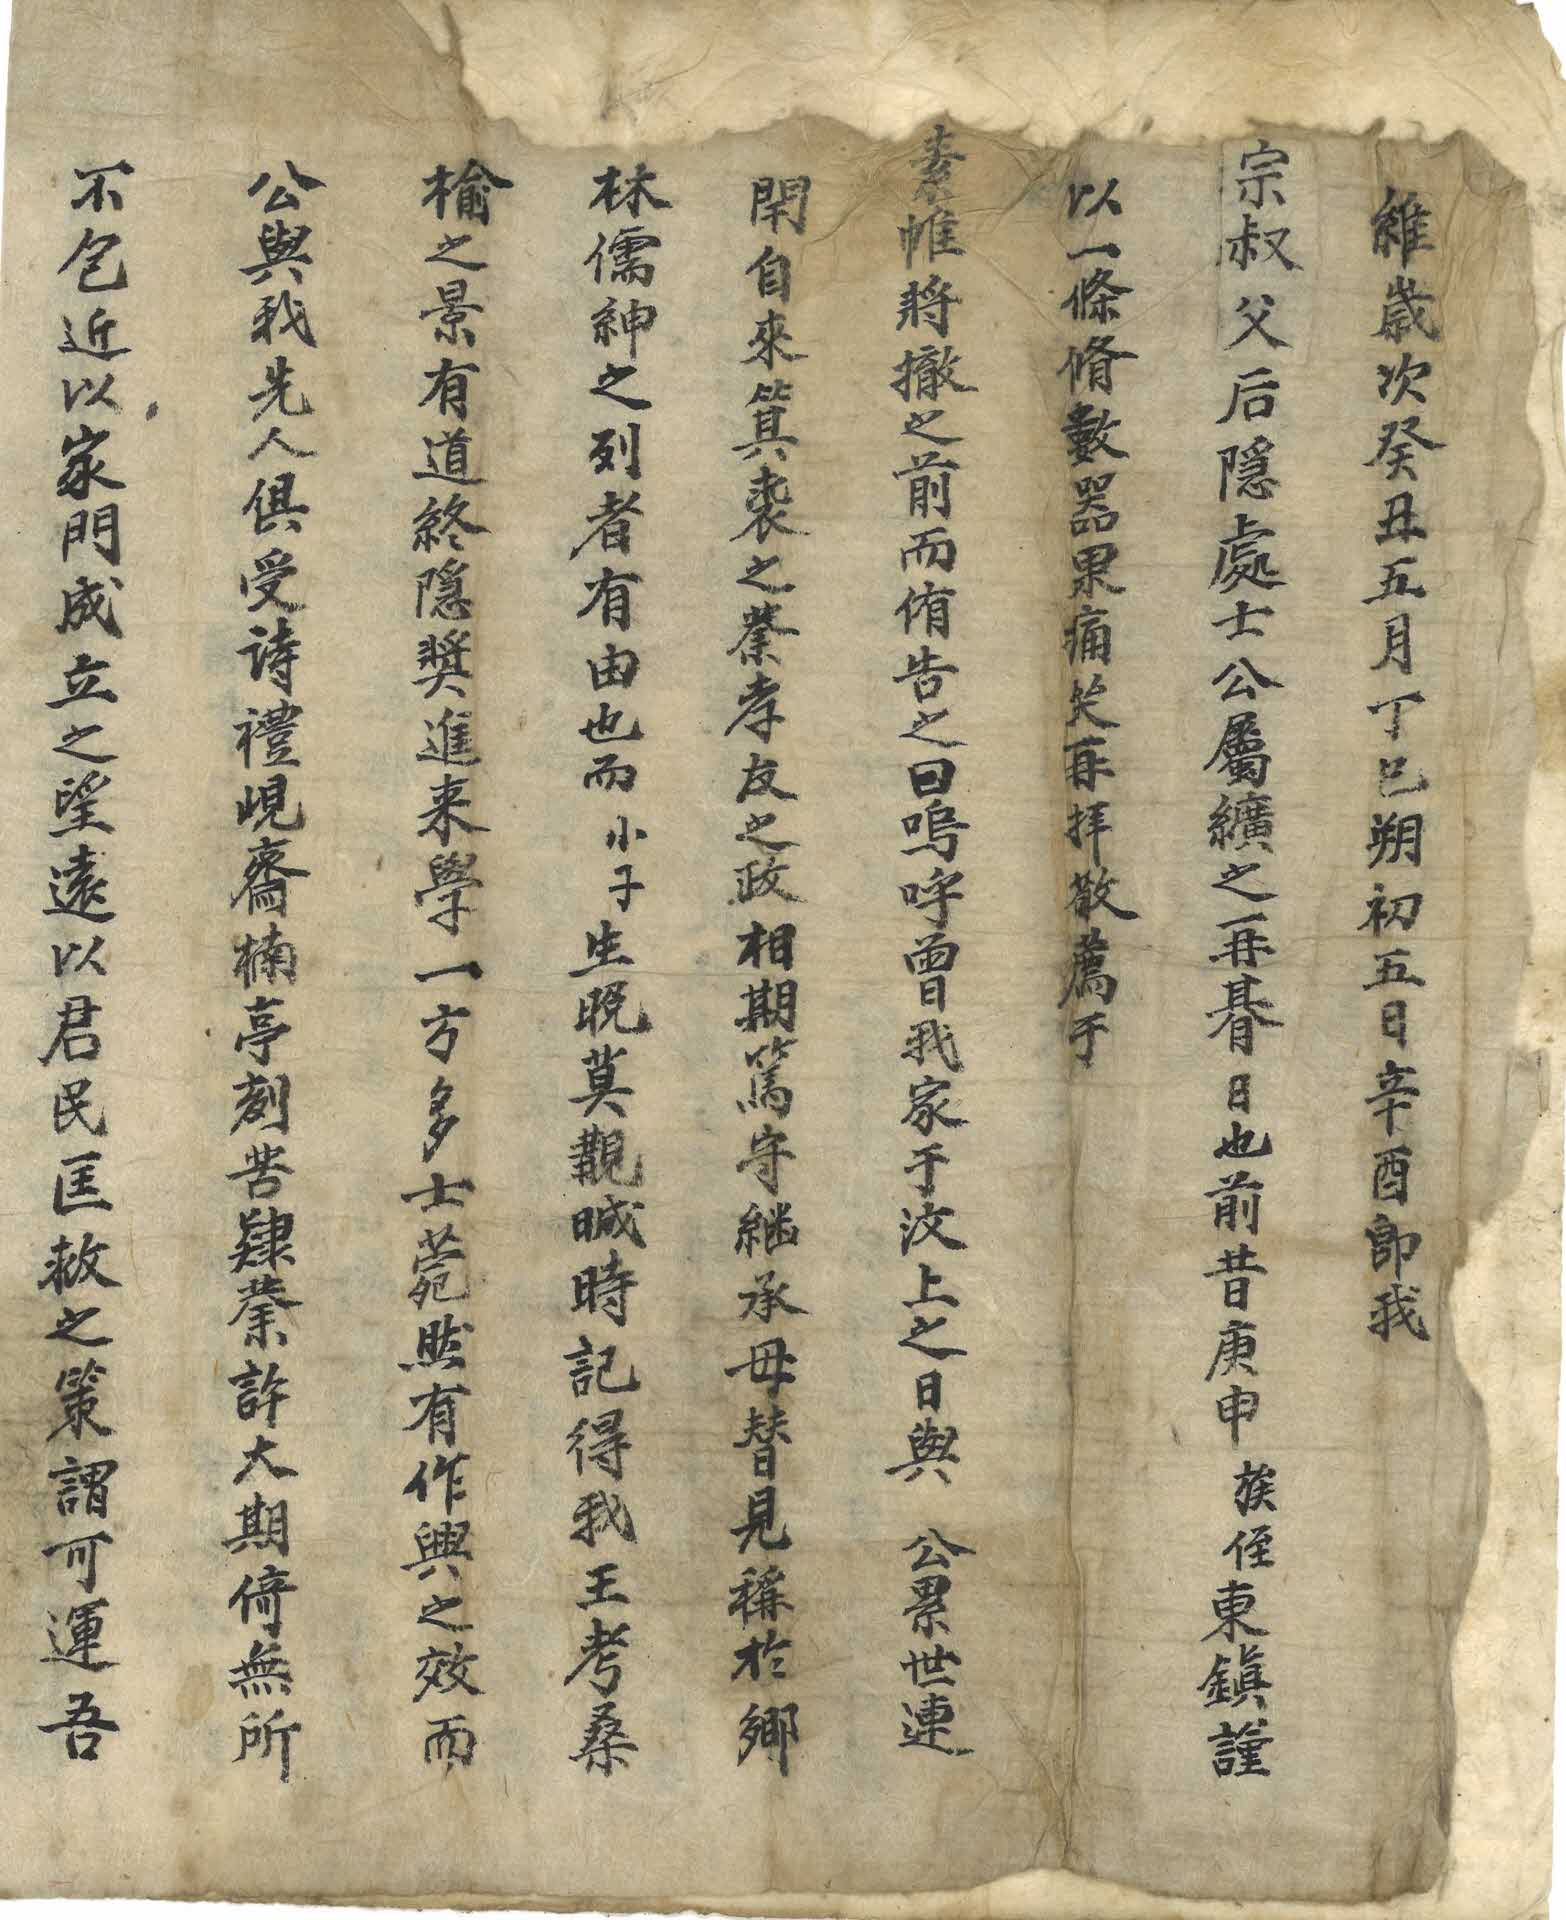 維歲次癸丑五月丁巳朔初五日辛酉卽我
宗叔父后隱處士公屬纊之再朞日也前昔庚申族侄東鎭謹
以一條脩數器果痛哭再拜敬薦于
素帷將撤之前而侑告之曰嗚呼曾我家于汶上之日與 公累世連
閈自來箕裘之業孝友之政相期篤守繼承毋替見稱於鄉
林儒紳之列者有由也而小子生晩莫覩曁時記得我王考桑
榆之景有道終隱奬進来學一方多士菀然有作興之效而
公與我先人俱受詩禮峴齋楠亭刻苦肄業許大期倚無所
不包近以家門成立之望遠以君民匡救之策謂可運吾